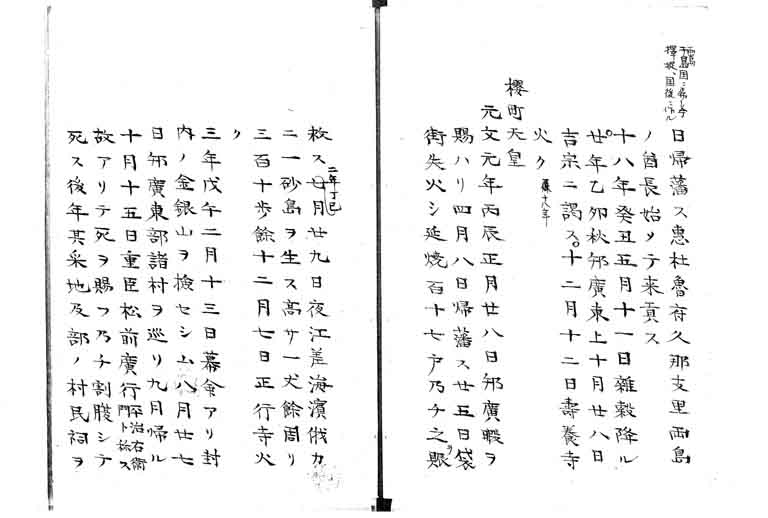 日帰藩ス恵杜魯府久那支里両島
ノ酋長始メテ来貢ス
十八年癸丑五月十一日雑穀降ル
廿年乙卯秋邦廣東上十月廿八日
吉宗ニ謁ス十二月十二日壽養寺
火ク
櫻町天皇
元文元年丙辰正月廿八日邦廣暇ヲ
賜ハリ四月八日帰藩ス廿五日袋
街失火シ延焼百十七戸乃チ之ヲ賑
救ス二年丁巳
月廿九日夜江差海濱俄カ
ニ一砂島ヲ生ス高サ一丈餘周リ
三百十歩餘十二月七日正行寺火
ク
三年戊午二月十三日幕命アリ封
内ノ金銀山ヲ検セシム八月廿七
日邦廣東部諸村ヲ巡リ九月帰ル
十月十五日重臣松前廣行平治右衛
門ト称ス
故アリテ死ヲ賜フ乃チ割腹シテ
死ス後年其采地及部ノ村民祠ヲ